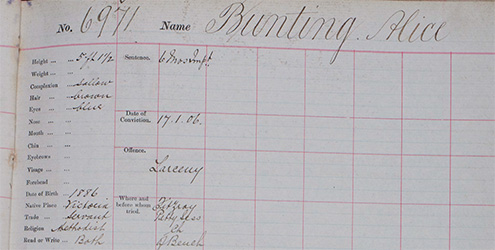 No. 6971 Name Bunting Alice
Height ... 5 ft 1½ Sentence. 6 Mos Impt
Weight ...
Complexion ... Sallow
Hair ... brown
Eyes ... blue
Nose ... Date of Conviction. 17.1.06.
Mouth ...
Chin ...
Eyebrows Offence.
Visage ... Larceny
Forehead
Date of Birth ... 1886
Native Place Victoria Where and before whom tried. Fitzroy
Trade ... Servant Petty Sess
Religion Methodist
Read or Write ... Both Bench